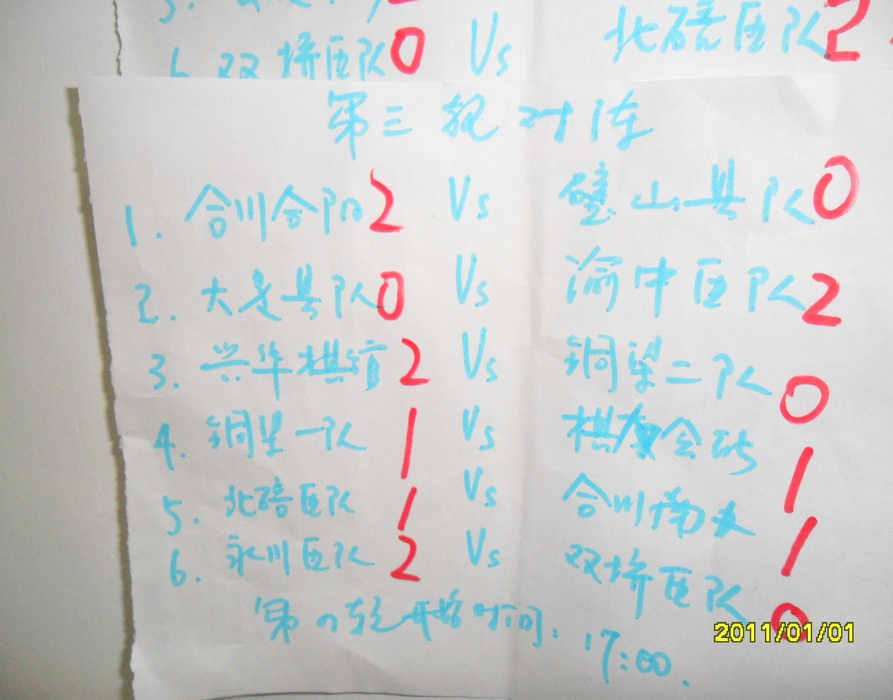 6 双桥区队 0 Vs 北碚区队 2
第三轮对阵
1. 合川合阳 2 Vs 璧山县队 0
2. 大足县队 0 Vs 渝中区队 2
3. 兴华棋馆 2 Vs 铜梁二队 0
4. 铜梁一队 1 Vs 棋友会所 1
5. 北碚区队 1 Vs 合川南 1
6. 永川区队 2 Vs 双桥区队 0
第四轮开始时间: 17:00.
2011/01/01